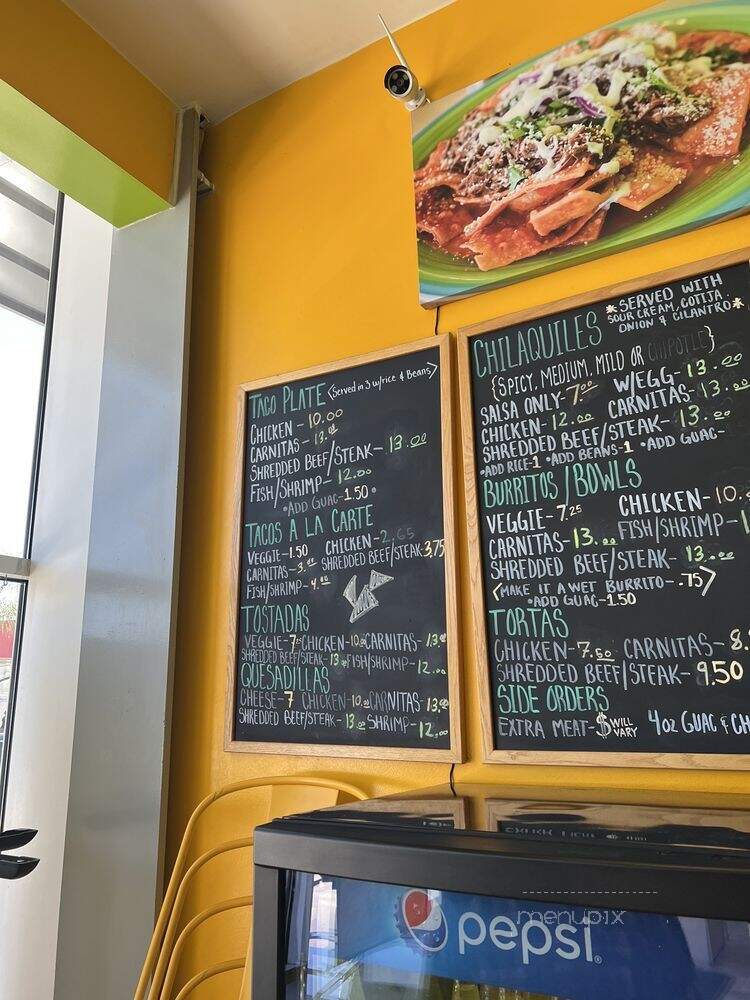 TACO PLATE <Served in 3 w/rice & Beans>
CHICKEN - 10.00
CARNITAS - 13.00
SHREDDED BEEF/STEAK - 13.00
FISH/SHRIMP - 12.00
•ADD GUAC - 1.50•
TACOS A LA CARTE
VEGGIE - 1.50 CHICKEN - 2.65
CARNITAS - SHREDDED BEEF/STEAK - 3.75
FISH/SHRIMP -
TOSTADAS
VEGGIE - CHICKEN - 10.00 CARNITAS - 13.00
SHREDDED BEEF/STEAK - 13.00 FISH/SHRIMP - 12.00
QUESADILLAS
CHEESE - 7 CHICKEN - 10.00 CARNITAS - 13.00
SHREDDED BEEF/STEAK - 13.00 SHRIMP - 12.00
CHILAQUILES *SERVED WITH
SOUR CREAM, COTIJA,
ONION & CILANTRO*
{SPICY, MEDIUM, MILD OR CHIPOTLE}
SALSA ONLY - 7.00 W/EGG - 13.00
CHICKEN - 12.00 CARNITAS - 13.00
SHREDDED BEEF/STEAK - 13.00
•ADD RICE - 1 •ADD BEANS - 1 •ADD GUAC -
BURRITOS/BOWLS
VEGGIE - 7.25 CHICKEN - 10.
CARNITAS - 13.00 FISH/SHRIMP - 1
SHREDDED BEEF/STEAK - 13.00
<MAKE IT A WET BURRITO - .75>
•ADD GUAC - 1.50
TORTAS
CHICKEN - 7.50 CARNITAS - 8.
SHREDDED BEEF/STEAK - 9.50
SIDE ORDERS
EXTRA MEAT - $ WILL VARY 4OZ GUAC & CH
pepsi
menupix